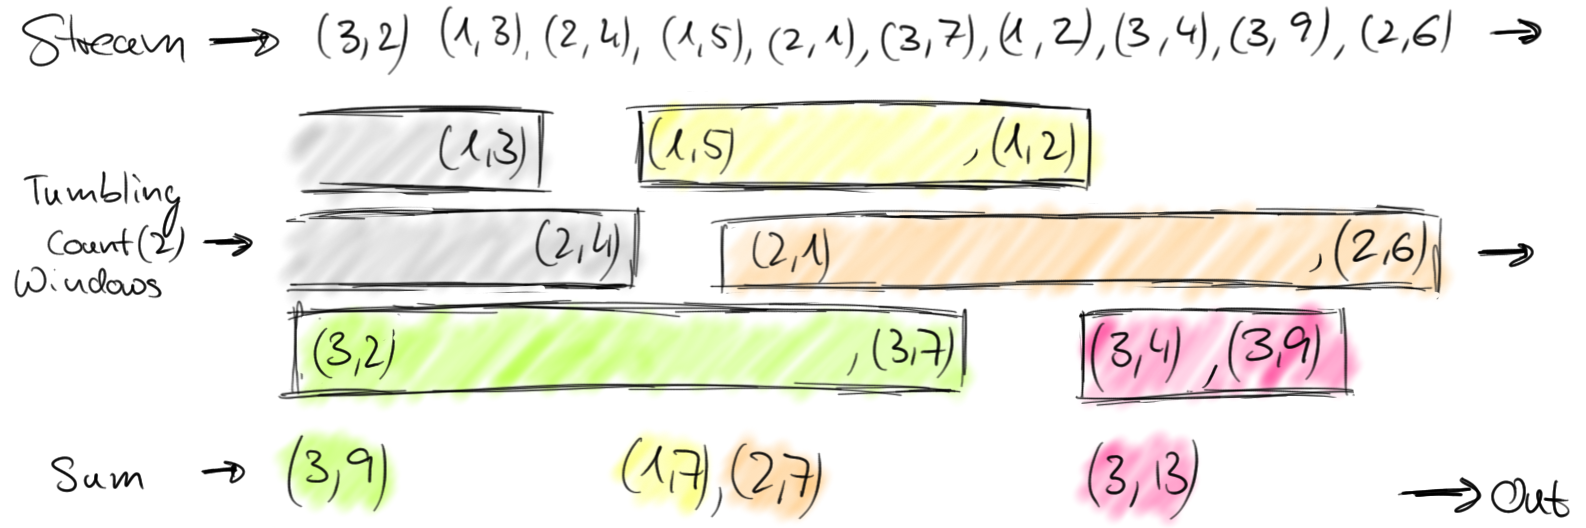 Stream → (3,2) (1,3), (2,4), (1,5), (2,1), (3,7), (1,2), (3,4), (3,9), (2,6) →
(1,3) (1,5) , (1,2)
Tumbling
Count(2) → (2,4) (2,1) , (2,6) →
Windows
(3,2) , (3,7) (3,4) , (3,9)
Sum → (3,9) (1,7), (2,7) (3,13) → Out